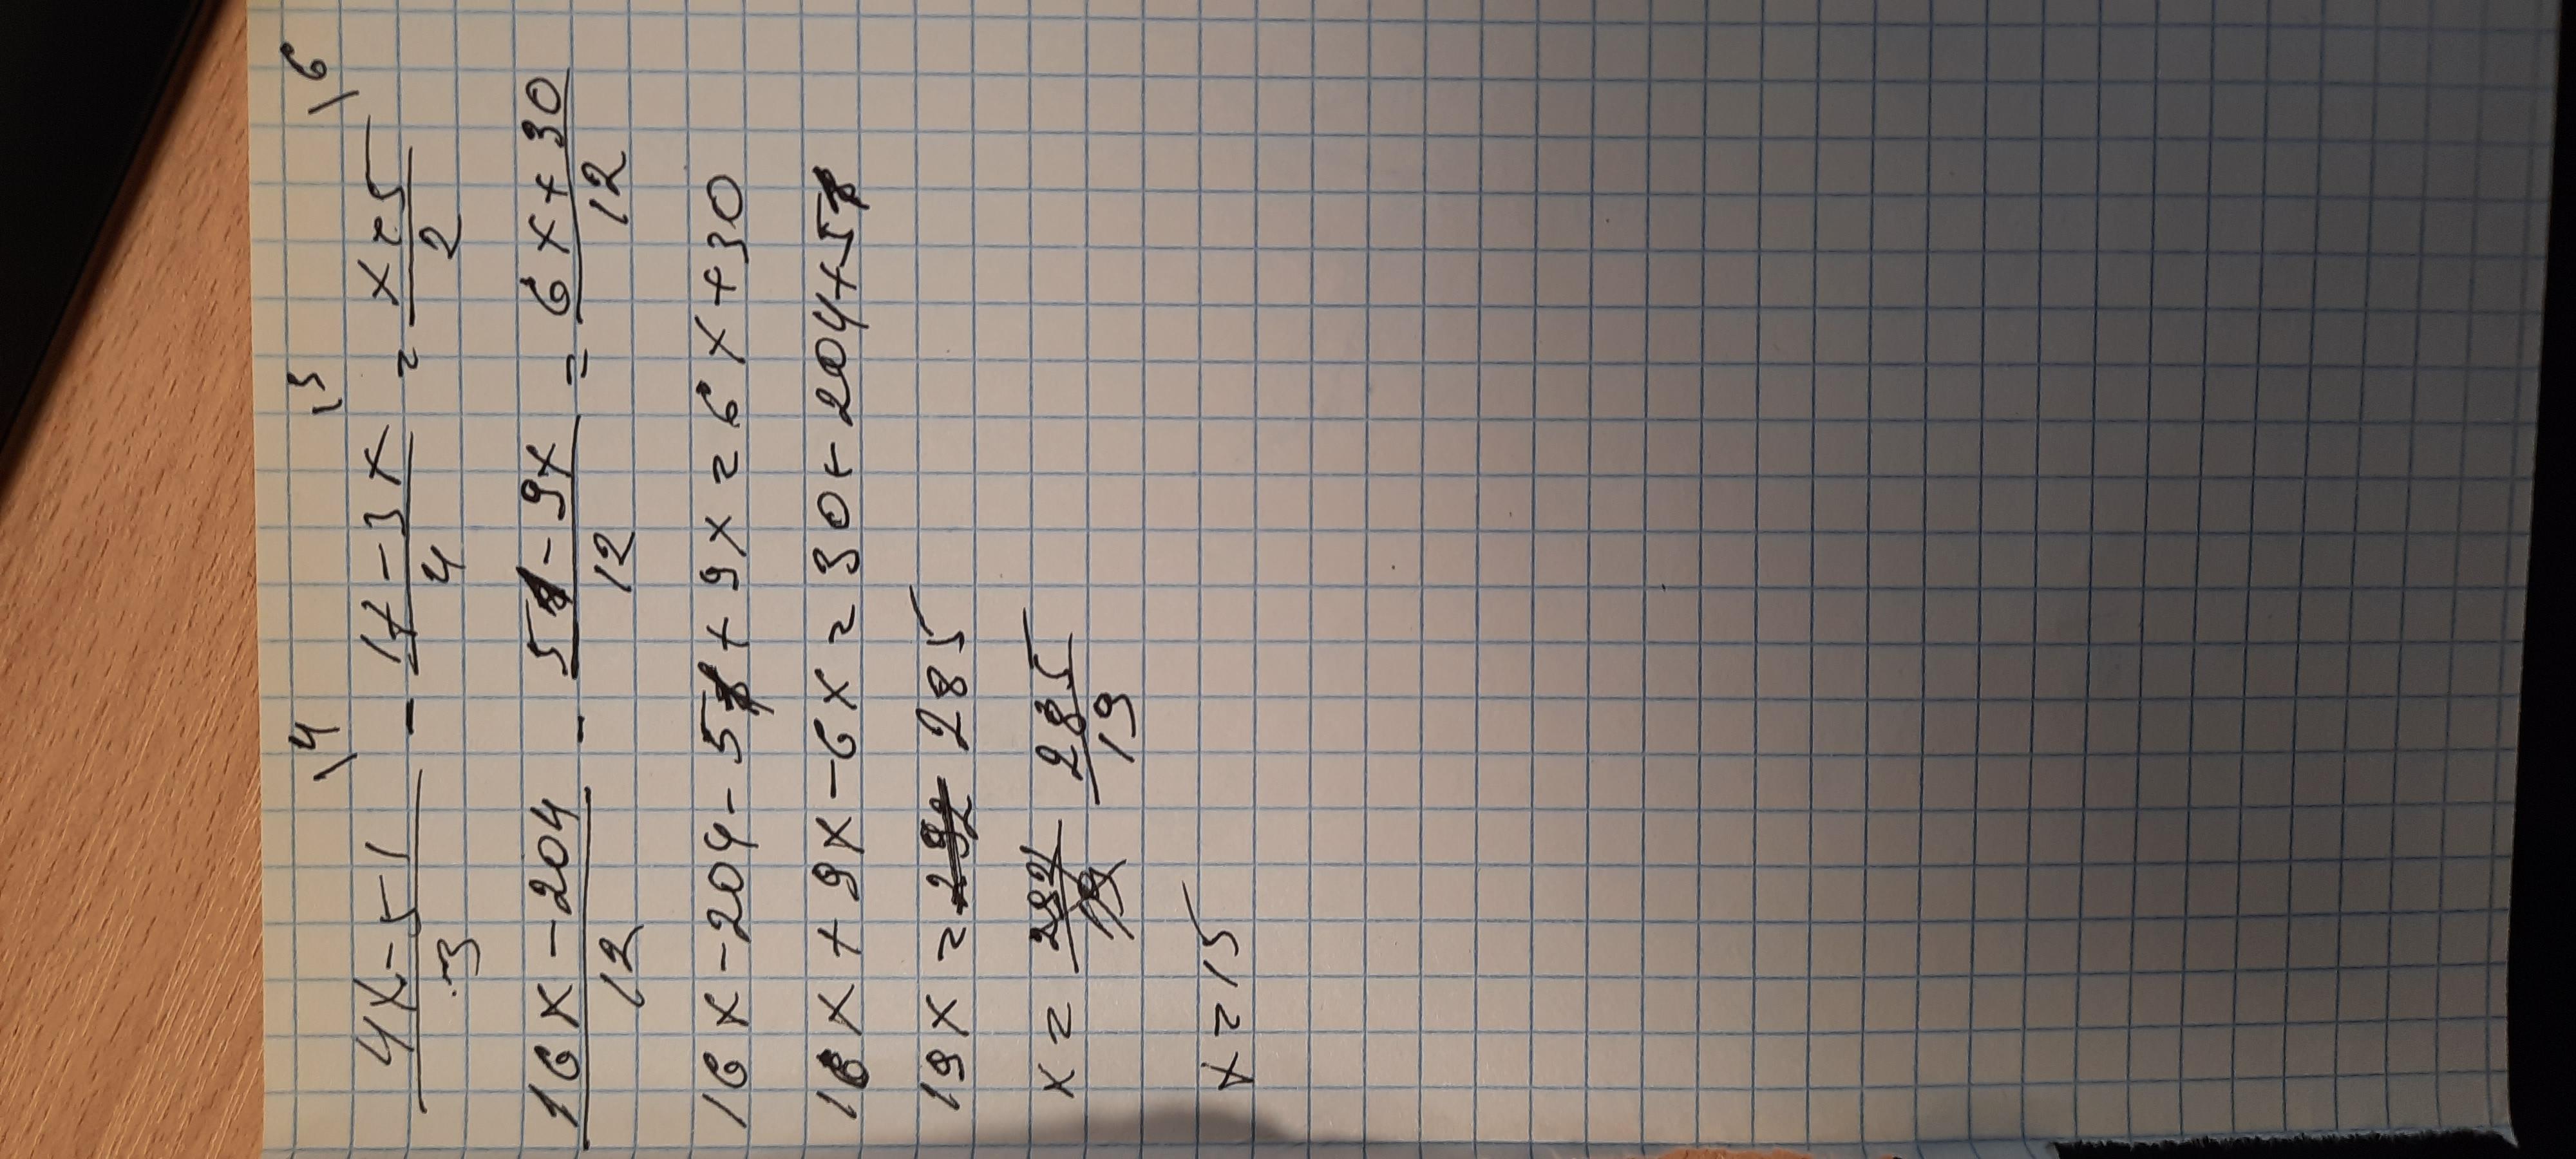 \4 \3 \6
4x-51/3 - 17-3x/4 = x+5/2
16x-204/12 - 51-9x/12 = 6x+30/12
16x-204-51+9x=6x+30
16x+9x-6x=30+204+51
19x=292 285
x= 285/19
x=15